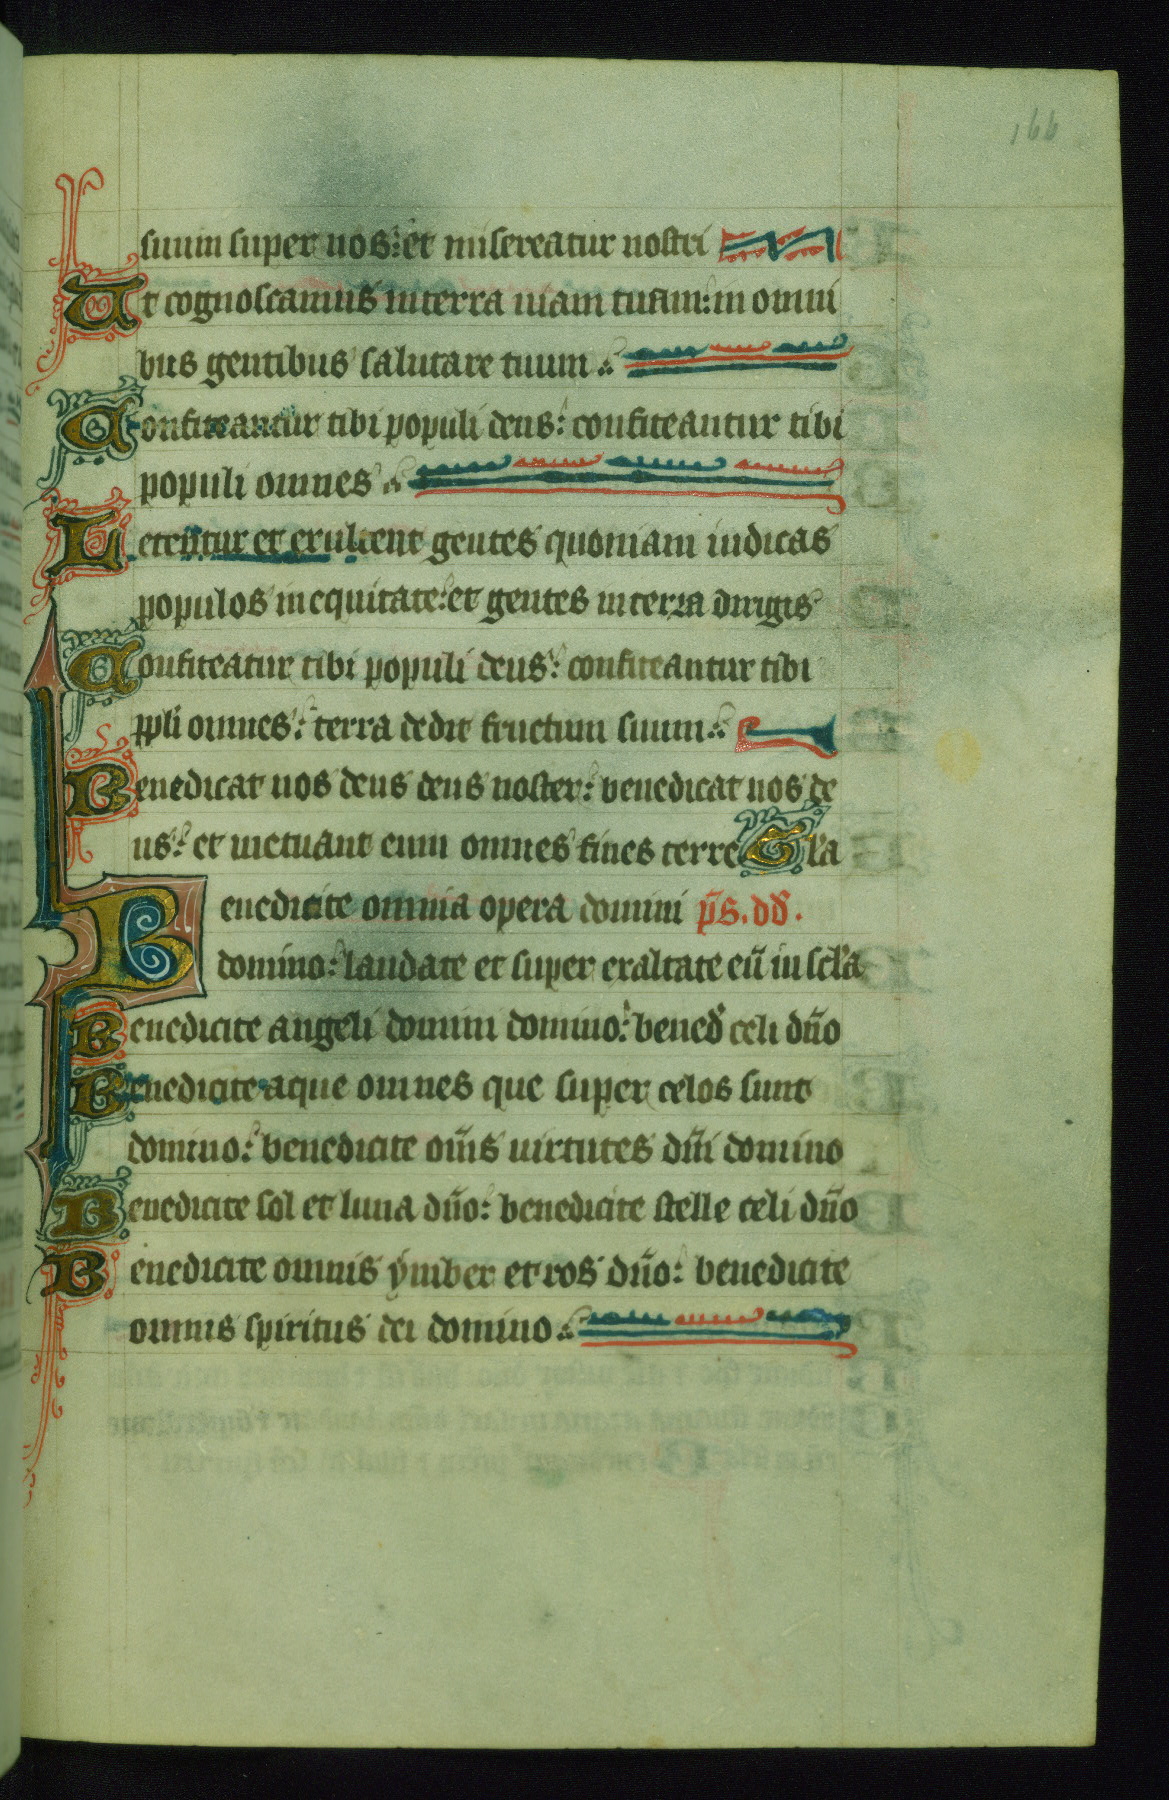 166
suum super nos: et misereatur nostri
Ut cognoscamus in terra uiam tuam: in omni
bus gentibus salutare tuum
Confiteantur tibi populi deus: confiteantur tibi
populi omnes
Letentur et exultent gentes quoniam iudicas
populos in equitate: et gentes in terra dirigis
Confiteatur tibi populi deus: confiteantur tibi
ppli omnes: terra dedit fructum suum
Benedicat nos deus deus noster: benedicat nos de
us: et metuant eum omnes fines terre Gl'a
Benedicite omnia opera domini p̄s. dd̄.
domino: laudate et super exaltate eū in scl'a
Benedicite angeli domini domino: bened̄ celi dn̄o
Benedicite aque omnes que super celos sunt
domino: benedicite om̄s uirtutes dn̄i domino
Benedicite sol et luna dn̄o: benedicite stelle celi dn̄o
Benedicite omnis ymber et ros dn̄o: benedicite
omnis spiritus dei domino